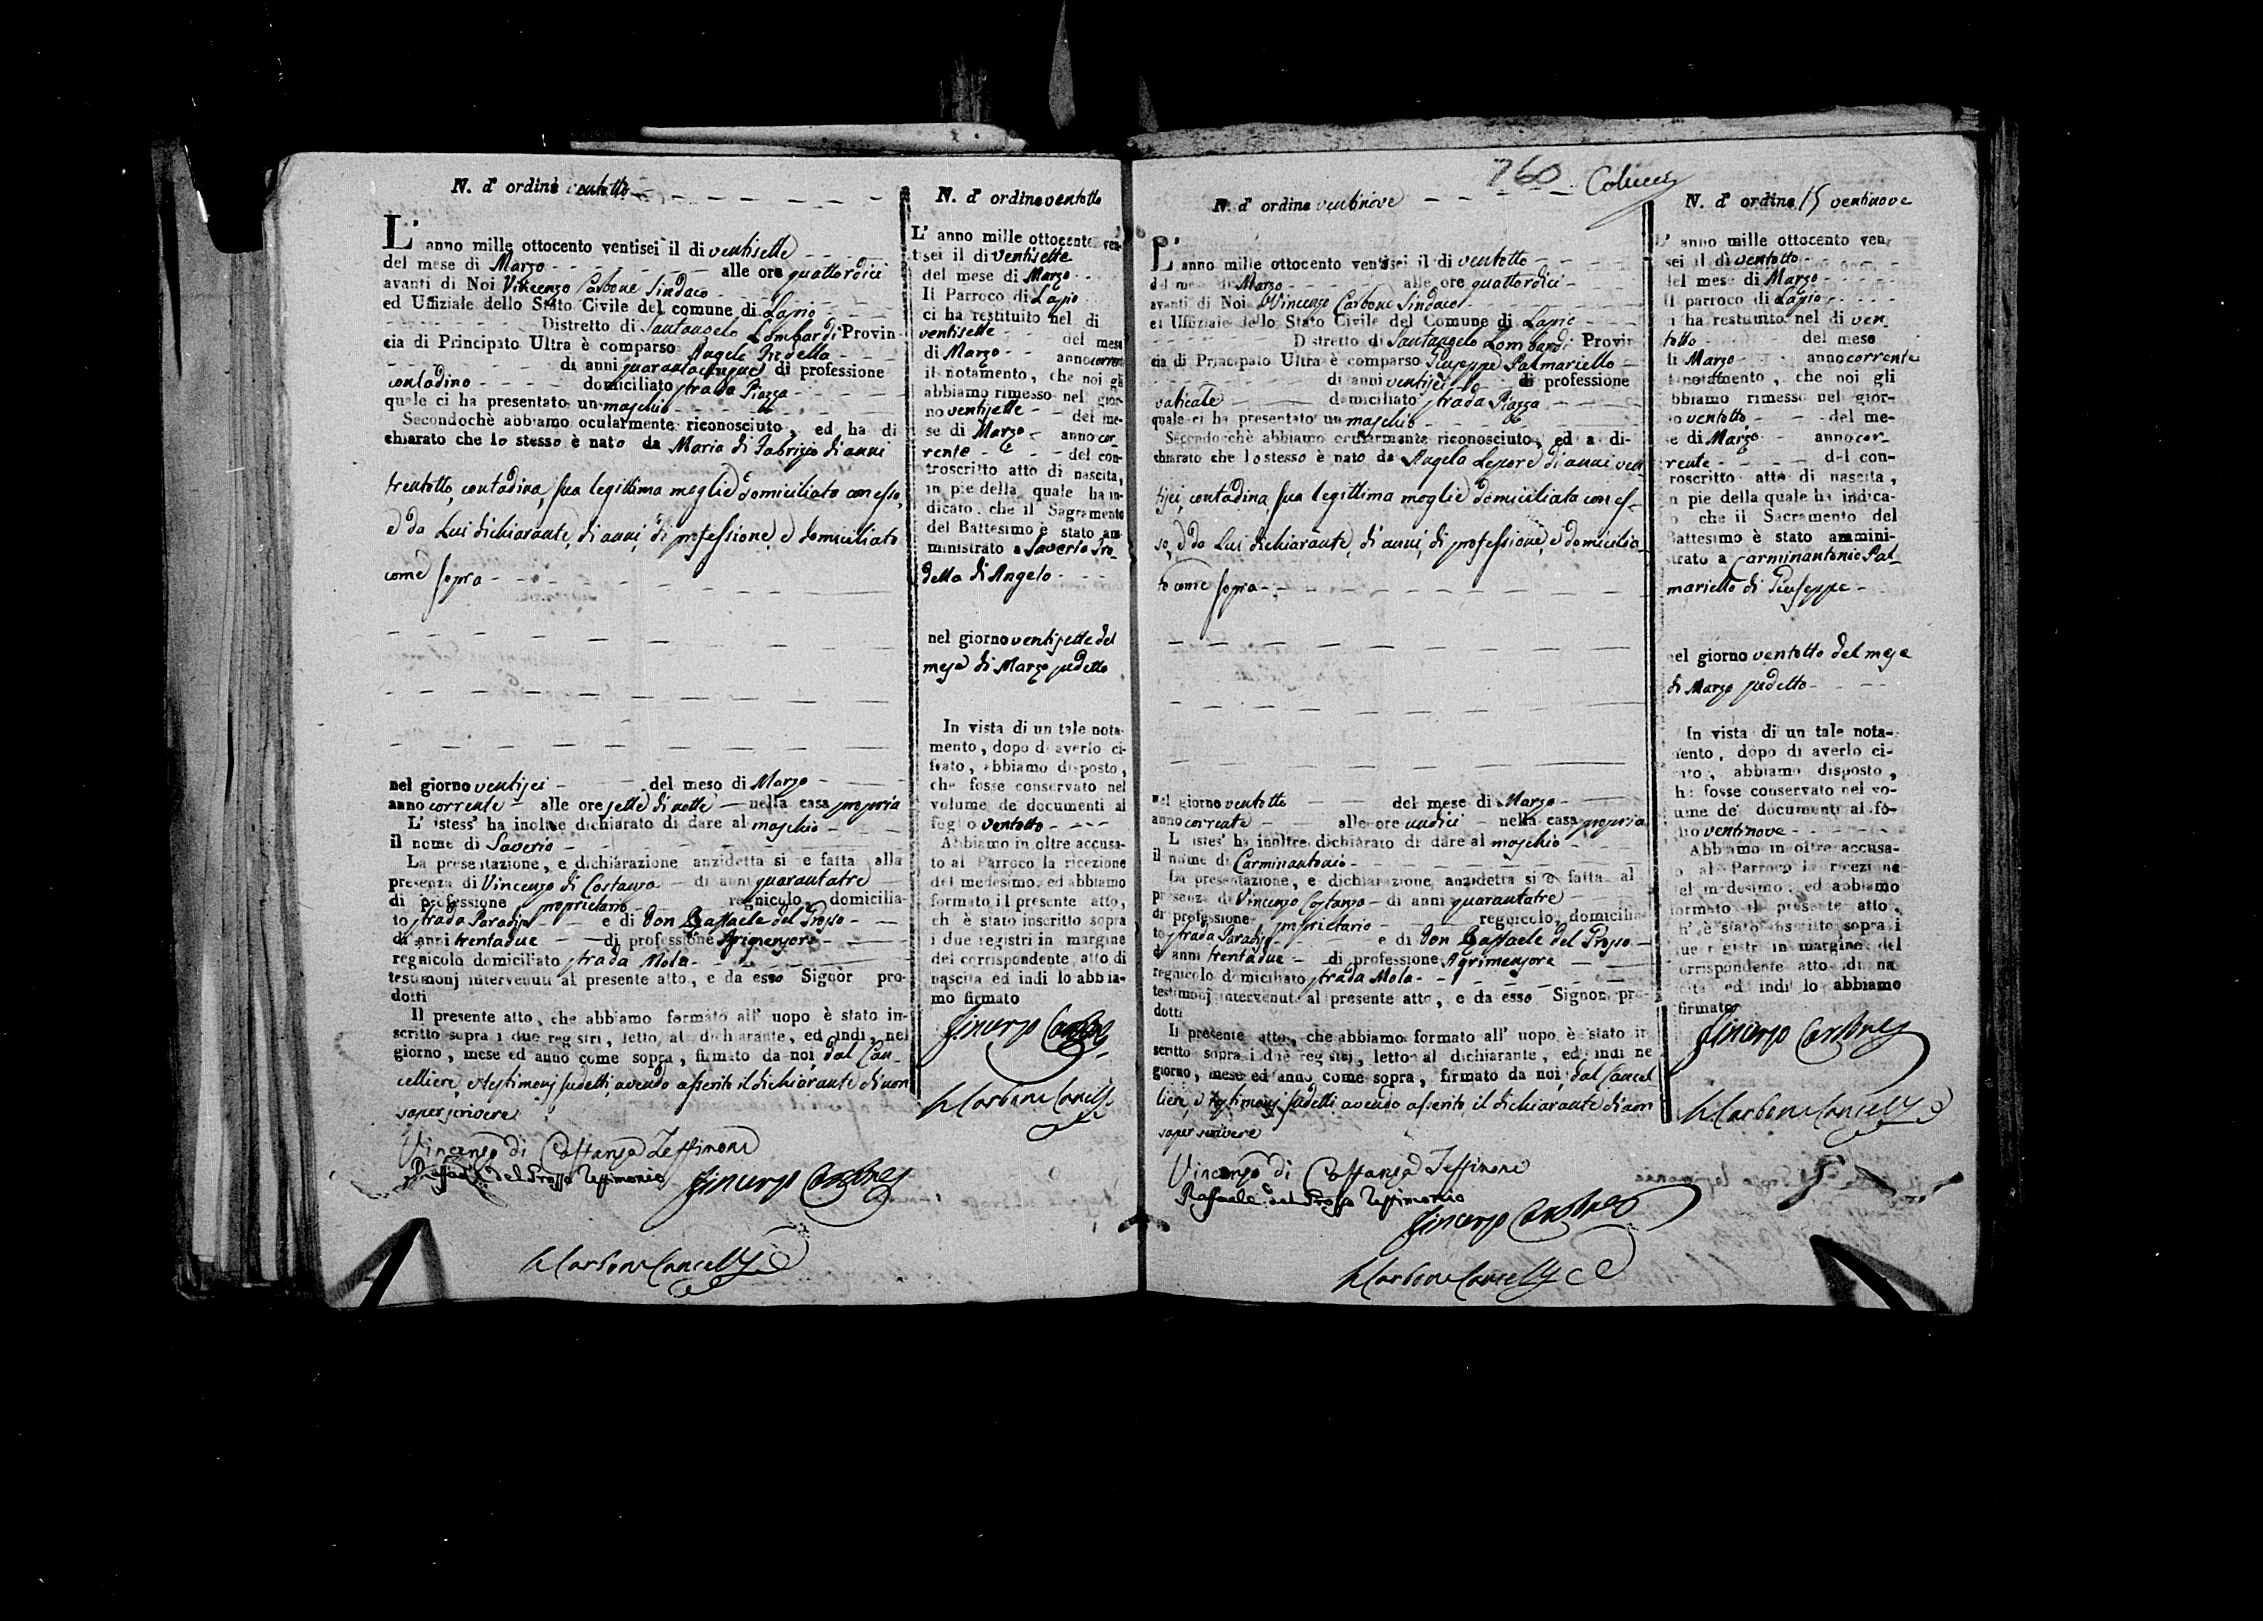 N. d' ordine ventotto
L' anno mille ottocento ventisei il di ventisette
del mese di Marzo alle ore quattordici
avanti di Noi Vincenzo Carbone Sindaco
ed Uffiziale dello Stato Civile del comune di Lapio
Distretto di Santangelo Lombardi Provin
cia di Principato Ultra è comparso Angelo
di anni quarantacinque di professione
contadino domiciliato strada Piazza
quale ci ha presentato un maschio
Secondochè abbiamo ocularmente riconosciuto, ed ha di
chiarato che lo stesso è nato da Maria di Fabrizio di anni
trentotto, contadina, sua legittima moglie domiciliata con esso,
e da Lui dichiarante, di anni, di professione, e domiciliato
come sopra
nel giorno ventisei del mese di Marzo
anno corrente alle ore sette di notte nella casa propria
L' istess' ha inoltre dichiarato di dare al maschio
il nome di Saverio
La presentazione, e dichiarazione anzidetta si e fatta alla
presenza di Vincenzo di Costanzo di anni quarantatre
di professione proprietario regnicolo, domicilia-
to strada Paradiso e di Don Raffaele del Grosso
di anni trentadue di professione Agrimensore
regnicolo domiciliato strada Mola
testimonj intervenuti al presente atto, e da esso Signor pro-
dotti
Il presente atto, che abbiamo formato all' uopo è stato in-
scritto sopra i due registri, letto al dichiarante, ed indi, nel
giorno, mese ed anno come sopra, firmato da noi, dal Can-
celliere, e testimonj sudetti, avendo asserito il dichiarante di non
saper scrivere
Vincenzo di Costanzo Testimone
Raffaele del Grosso Testimonio Vincenzo Carbone
Carbone Cancell.e
N. d' ordine ventotto
L' anno mille ottocento ven-
tisei il di ventisette
del mese di Marzo
Il Parroco di Lapio
ci ha restituito nel di
ventisette del mese
di Marzo anno corrente
il notamento, che noi gli
abbiamo rimesso nel gior-
no ventisette del me-
se di Marzo anno cor-
rente del con-
troscritto atto di nascita,
in pie della quale ha in-
dicato che il Sagramento
del Battesimo è stato am-
ministrato a Saverio
di Angelo
nel giorno ventisette del
mese di Marzo sudetto
In vista di un tale nota-
mento, dopo di averlo ci-
frato, abbiamo disposto,
che fosse conservato nel
volume de documenti al
foglio ventotto
Abbiamo in oltre accusa-
to al Parroco la ricezione
del medesimo, ed abbiamo
formato il presente atto,
ch' è stato inscritto sopra
i due registri in margine
del corrispondente atto di
nascita ed indi lo abbia-
mo firmato
Vincenzo Carbone
Carbone Cancell.e
760 Colucci
N. d' ordine ventinove
L' anno mille ottocento ventisei il di ventotto
del mese di Marzo alle ore quattordici
avanti di Noi Vincenzo Carbone Sindaco
ed Uffiziale dello Stato Civile del Comune di Lapio
Distretto di Santangelo Lombardi Provin
cia di Principato Ultra è comparso Giuseppe Palmariello
di anni ventisei di professione
vaticale domiciliato strada Piazza
quale ci ha presentato un maschio
Secondochè abbiamo ocularmente riconosciuto, ed a di-
chiarato che lo stesso è nato da Angela Lepore di anni ven-
tisei, contadina, sua legittima moglie domiciliata con es-
so, e da Lui dichiarante, di anni, di professione, e domicilia-
to come sopra
nel giorno ventotto del mese di Marzo
anno corrente alle ore undici nella casa propria
L' istes' ha inoltre dichiarato di dare al maschio
il nome di Carminantonio
La presentazione, e dichiarazione anzidetta si è fatta al
presenza di Vincenzo Costanzo di anni quarantatre
di professione proprietario regnicolo, domicilia-
to strada Paradiso e di Don Raffaele del Grosso
di anni trentadue di professione Agrimensore
regnicolo domiciliato strada Mola
testimonj intervenuti al presente atto, e da esso Signor pro-
dotti
Il presente atto, che abbiamo formato all' uopo è stato in
scritto sopra i due registri, letto al dichiarante, ed indi ne
giorno, mese ed anno come sopra, firmato da noi, dal Cancel
liere, e testimonj sudetti avendo asserito il dichiarante di non
saper scrivere
Vincenzo di Costanzo Testimone
Raffaele del Grosso Testimonio
Vincenzo Carbone
Carbone Cancell.e
N. d' ordine 15 ventinove
L' anno mille ottocento ven-
sei il di ventotto
del mese di Marzo
Il parroco di Lapio
ci ha restituito nel di ven
totto del mese
di Marzo anno corrente
il notamento, che noi gli
abbiamo rimesso nel gior-
no ventotto del me-
se di Marzo anno cor-
rente del con-
troscritto atto di nascita,
in pie della quale ha indica-
to che il Sacramento del
Battesimo è stato ammini-
strato a Carminantonio Pal-
mariello di Giuseppe
nel giorno ventotto del mese
di Marzo sudetto
In vista di un tale nota-
mento, dopo di averlo ci-
frato, abbiamo disposto,
che fosse conservato nel vo-
lume de' documenti al fo-
glio ventinove
Abbiamo in oltre accusa-
to al Parroco la ricezione
del medesimo, ed abbiamo
formato il presente atto,
ch' è stato inscritto sopra i
due registri in margine del
corrispondente atto di na
scita ed indi lo abbiamo
firmato
Vincenzo Carbone
Carbone Cancell.e